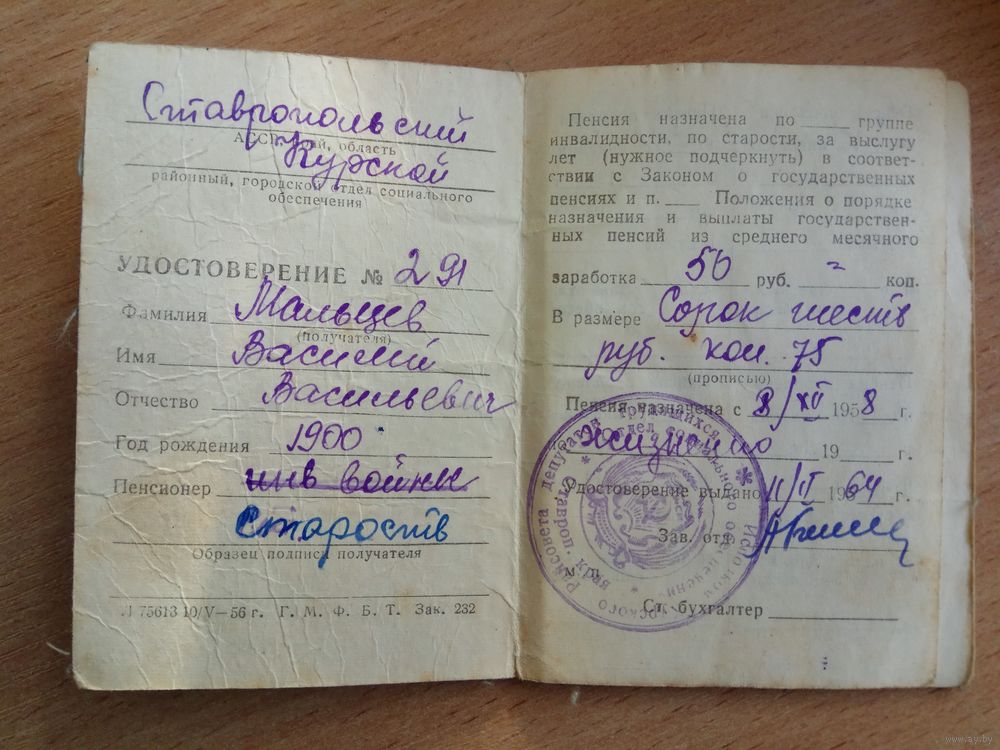 Ставропольский
АССР, край, область
Курской
районный, городской отдел социального
обеспечения
УДОСТОВЕРЕНИЕ № 291
Фамилия Мальцев
(получателя)
Имя Василий
Отчество Васильевич
Год рождения 1900
Пенсионер инв войны
Старость
Образец подписи получателя
Л 75613 10/V—56 г. Г. М. Ф. Б. Т. Зак. 232
Пенсия назначена по ____ группе
инвалидности, по старости, за выслугу
лет (нужное подчеркнуть) в соответ-
ствии с Законом о государственных
пенсиях и п. ____ Положения о порядке
назначения и выплаты государствен-
ных пенсий из среднего месячного
заработка 56 руб. = коп.
В размере Сорок шесть
руб. коп. 75
(прописью)
Пенсия назначена с 8/XII 1958 г.
по жизненно 19 г.
Удостоверение выдано 11/II 1964 г.
Зав. отд.
М. П.
Ст. бухгалтер
Исполком райсовета депутатов трудящихся
отдел социального обеспечения
www.ay.by